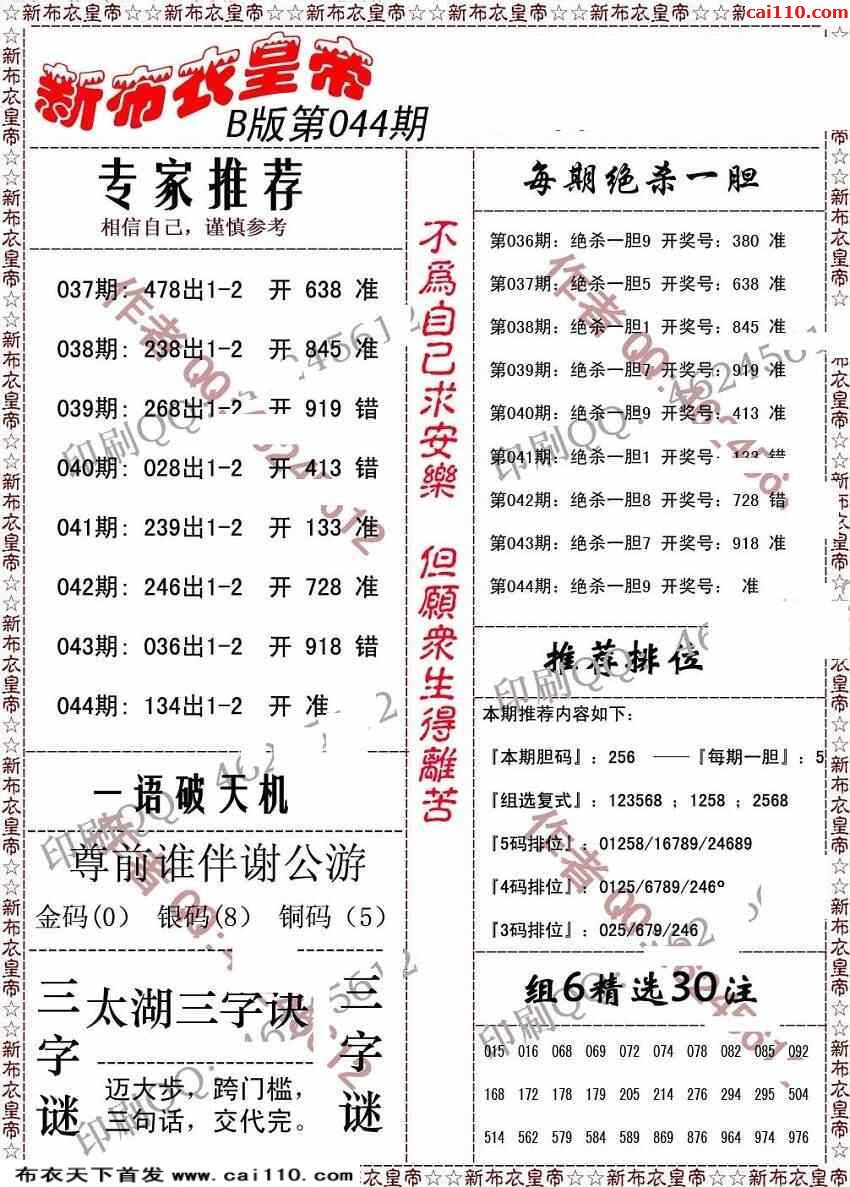 ☆☆新布衣皇帝☆☆新布衣皇帝☆☆新布衣皇帝☆☆新布衣皇帝☆☆新布衣皇帝☆☆新
cai110.com
新布衣皇帝
B版第044期
专家推荐
相信自己，谨慎参考
037期: 478出1-2 开 638 准
038期: 238出1-2 开 845 准
039期: 268出1-2 开 919 错
040期: 028出1-2 开 413 错
041期: 239出1-2 开 133 准
042期: 246出1-2 开 728 准
043期: 036出1-2 开 918 错
044期: 134出1-2 开 准
一语破天机
尊前谁伴谢公游
金码(0) 银码(8) 铜码(5)
三字谜
太湖三字诀
迈大步，跨门槛，
三句话，交代完。
三字谜
不為自己求安樂 但願眾生得離苦
每期绝杀一胆
第036期: 绝杀一胆9 开奖号: 380 准
第037期: 绝杀一胆5 开奖号: 638 准
第038期: 绝杀一胆1 开奖号: 845 准
第039期: 绝杀一胆7 开奖号: 919 准
第040期: 绝杀一胆9 开奖号: 413 准
第041期: 绝杀一胆1 开奖号: 133 错
第042期: 绝杀一胆8 开奖号: 728 错
第043期: 绝杀一胆7 开奖号: 918 准
第044期: 绝杀一胆9 开奖号: 准
推荐排位
本期推荐内容如下:
『本期胆码』: 256 ——『每期一胆』: 5
『组选复式』: 123568 ; 1258 ; 2568
『5码排位』: 01258/16789/24689
『4码排位』: 0125/6789/246
『3码排位』: 025/679/246
组6精选30注
015 016 068 069 072 074 078 082 085 092
168 172 178 179 205 214 276 294 295 504
514 562 579 584 589 869 876 964 974 976
布衣天下首发 www.cai110.com
衣皇帝☆☆新布衣皇帝☆☆新布衣皇帝☆☆新布衣皇帝☆☆